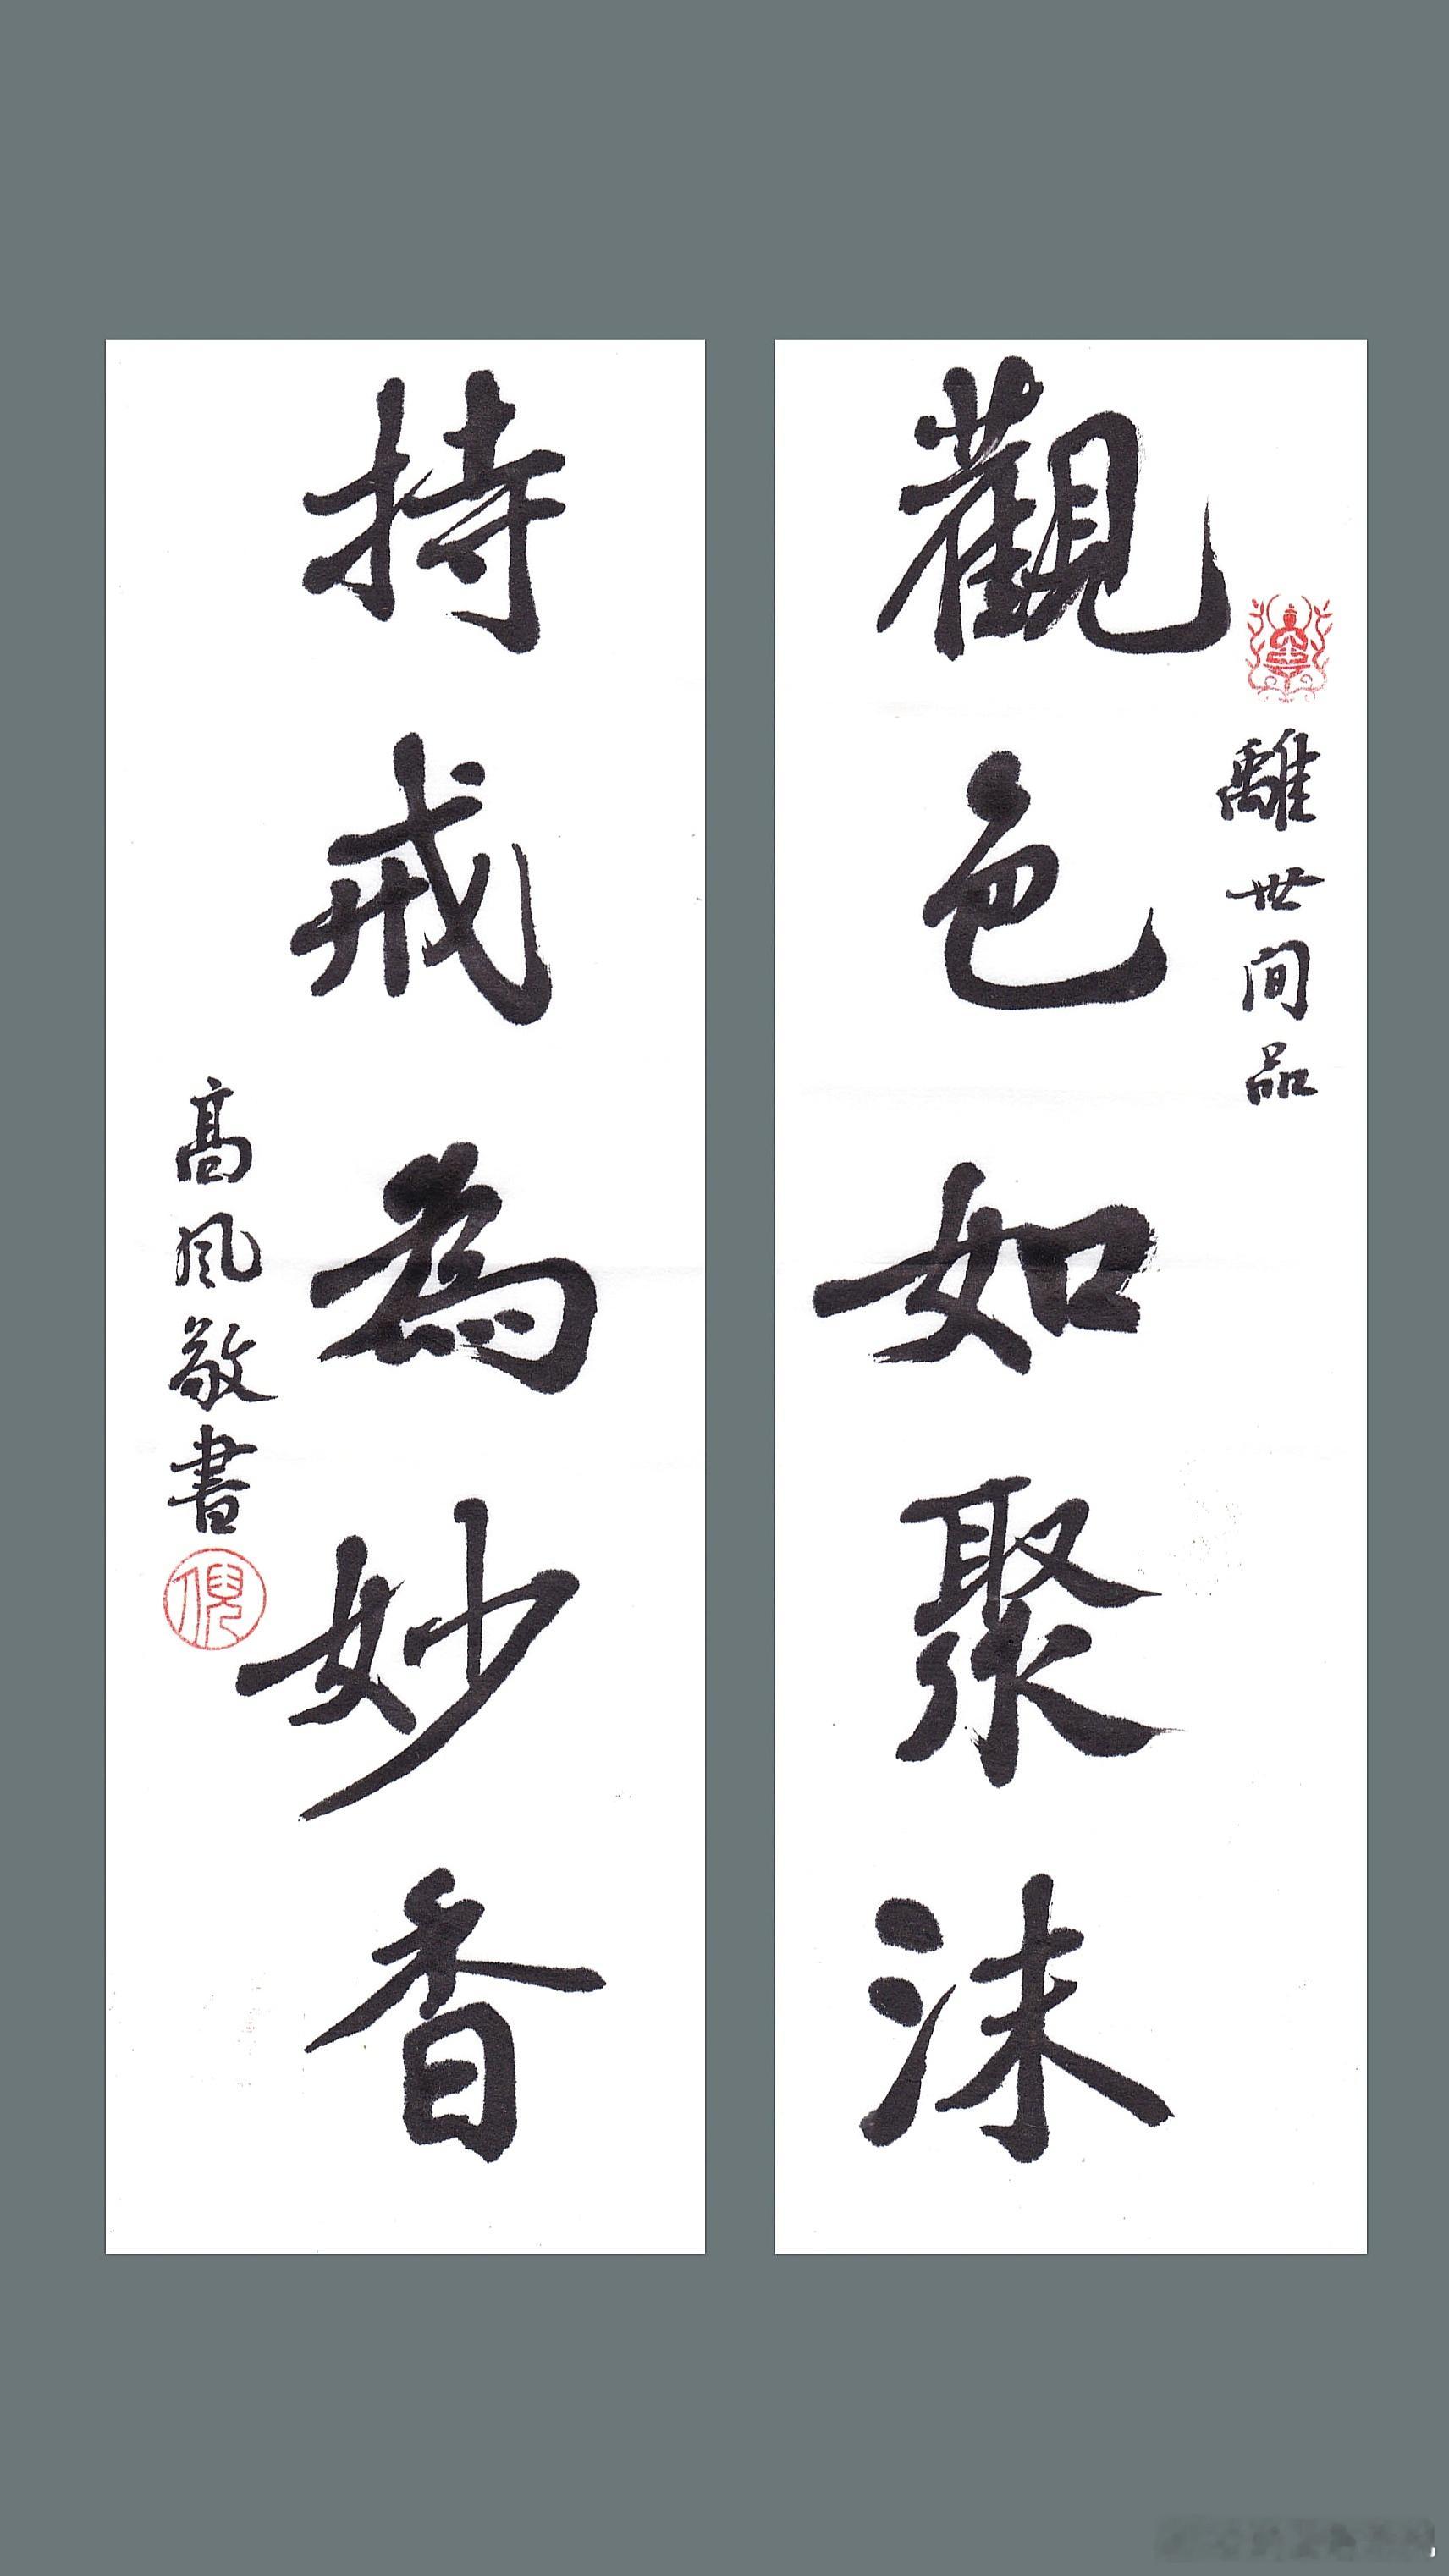 觀色如聚沫
離世间品
持戒為妙香
高風敬書
倪